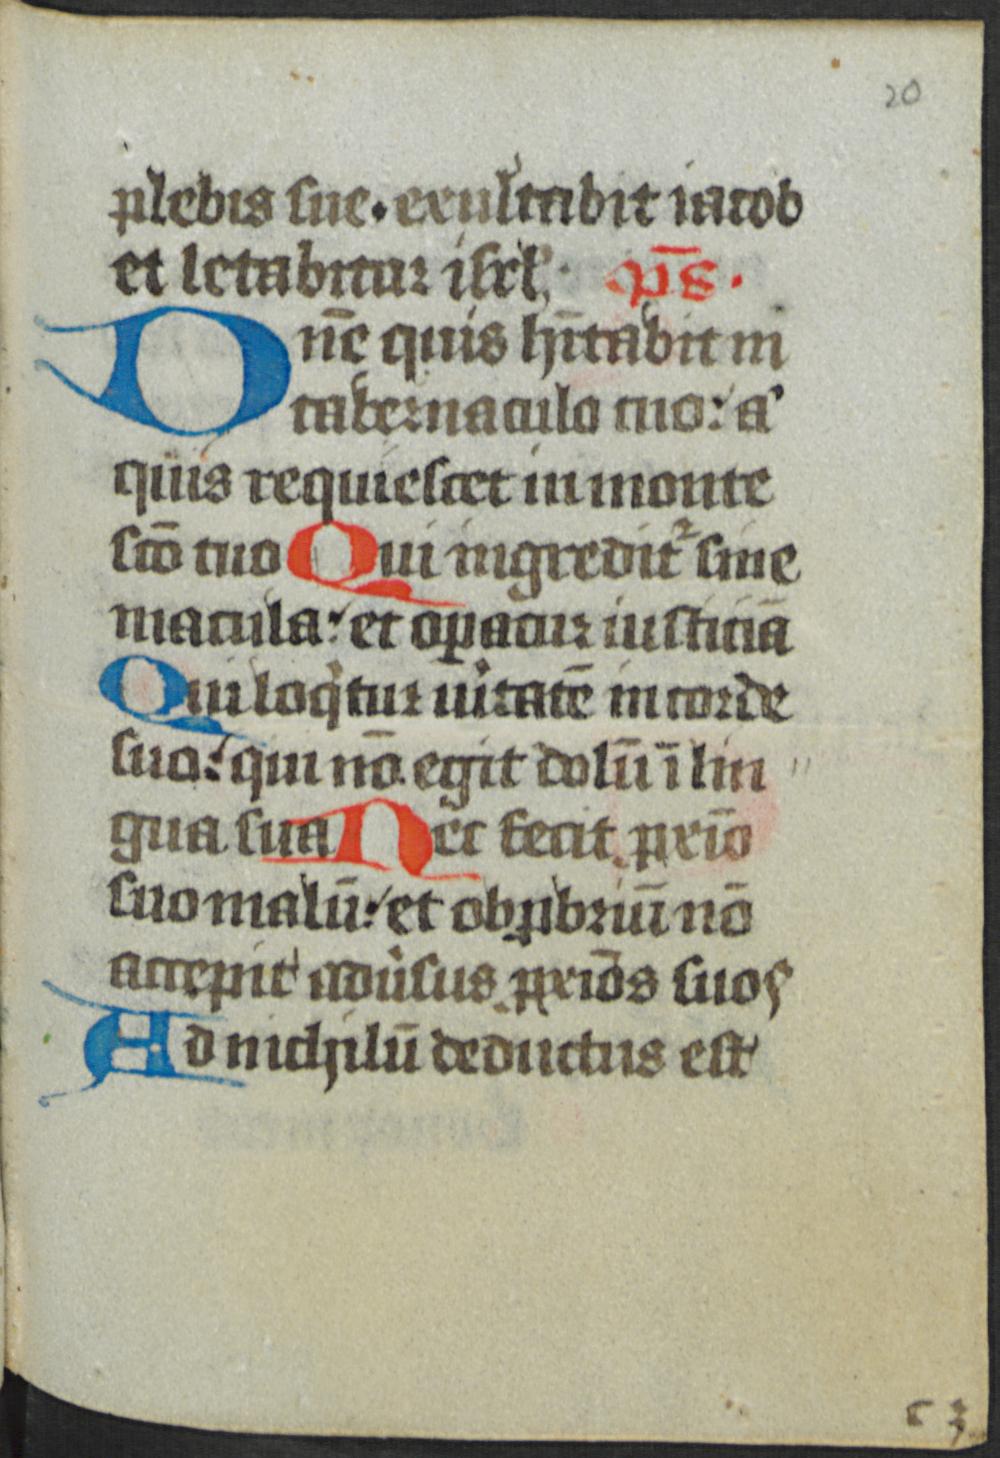 20
plebis sue. exultabit iacob
et letabitur isrl'; ps̄.
Dn̄e quis hītabit in
tabernaculo tuo: a'
quis requiescet in monte
scō tuo Qui ingredit᷑ sine
macula: et oꝑatur iusticiā
Qui loqͥtur u̾itatē in corde
suo: qui nō egit dolū ī lin
gua sua Nec fecit ꝓxīo
suo malū: et obꝓbriū nō
accepit adu̾sus ꝓxīos suos
Ad nichilū deductus est